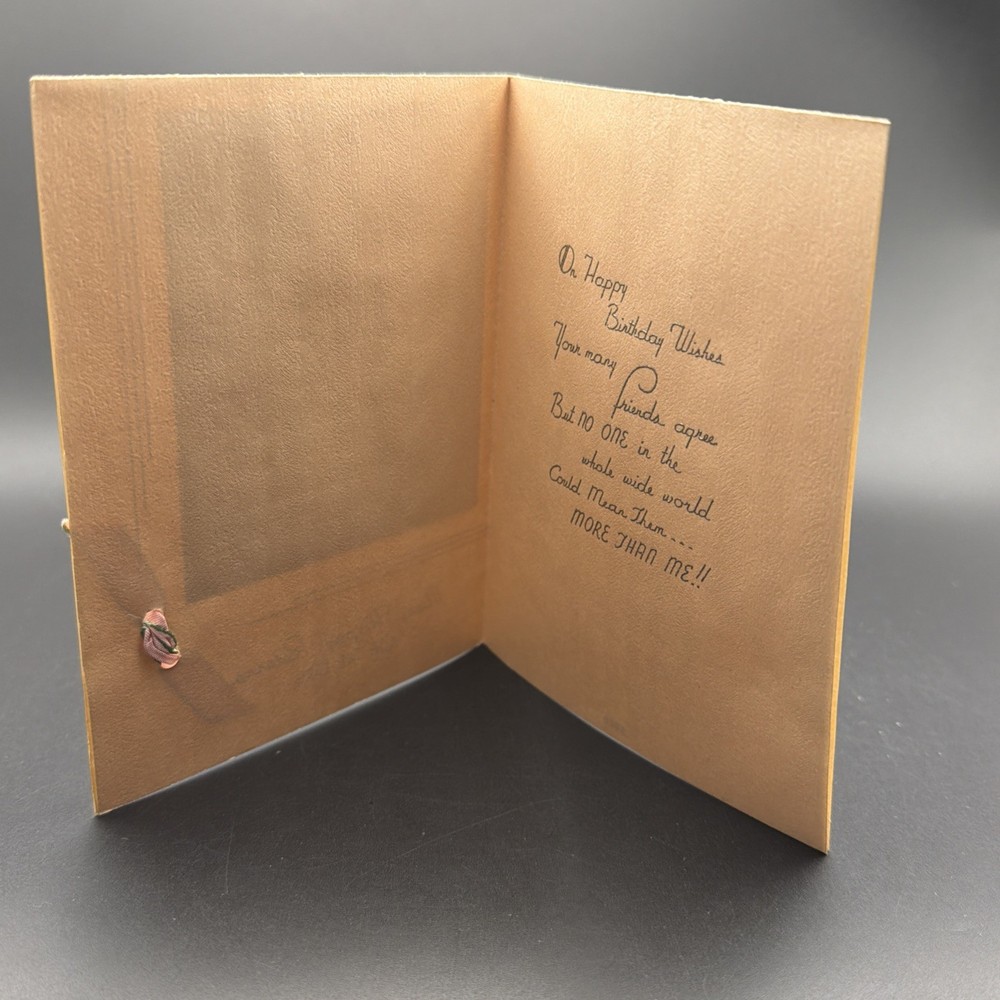 On Happy
Birthday Wishes
Your many
Friends agree
But NO ONE in the
whole wide world
Could Mean Them...
MORE THAN ME!!